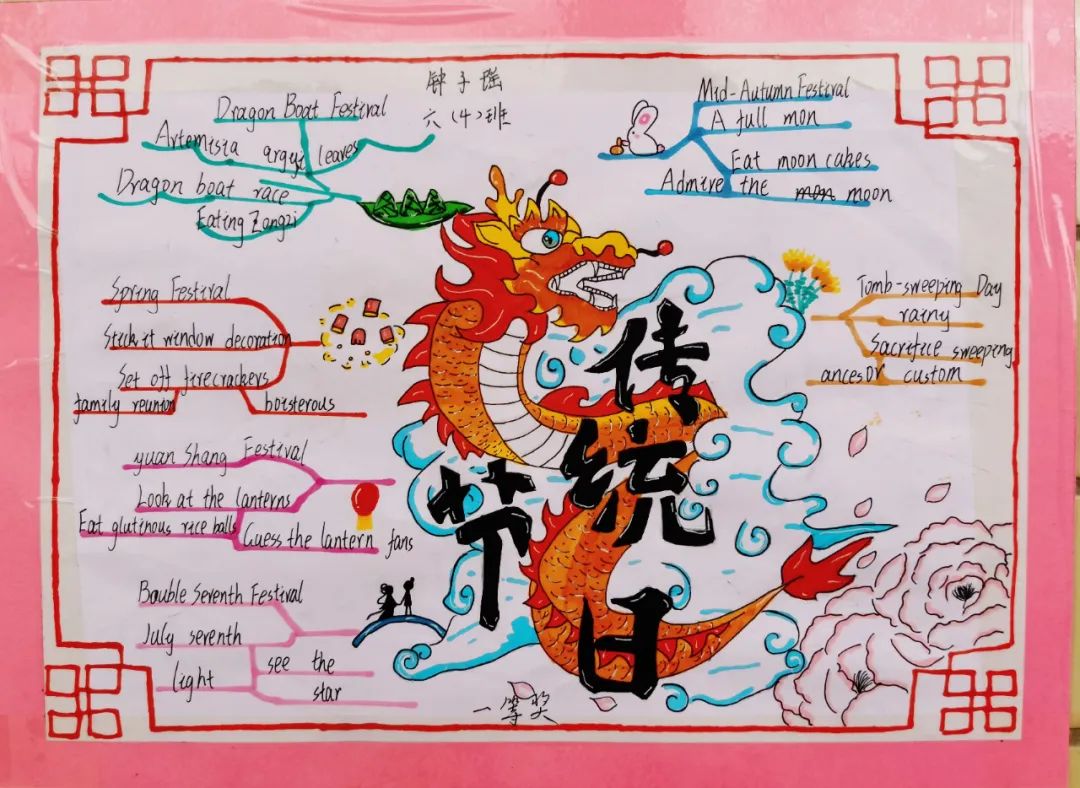 钟子瑶
六(4)班
Dragon Boat Festival
Artemisia argyi leaves
Dragon boat race
Eating Zongzi
Mid-Autumn Festival
A full mon
Eat moon cakes
Admire the mon moon
Spring Festival
Stick it window decoration
Set off firecrackers
family reunion
boisterous
Tomb-sweeping Day
rainy
Sacrifice sweeping
ancesor custom
yuan Shang Festival
Look at the lanterns
Eat glutinous rice balls
Guess the lantern fans
Bouble Seventh Festival
July seventh
light
see the
star
传
统
节
日
一等奖